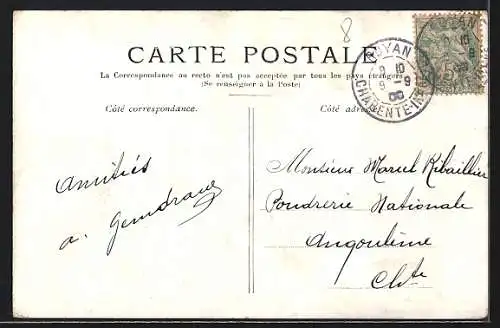 8
CARTE POSTALE
La Correspondance au recto n'est pas acceptée par tous les pays étrangers
(Se renseigner à la Poste)
Côté correspondance.
Côté adresse.
ROYAN
9 10
9 - 9
CHARENTE-INF
Amitiés
a.
Monsieur Marcel Ribaillier
Poudrerie Nationale
Angoulême
Chte